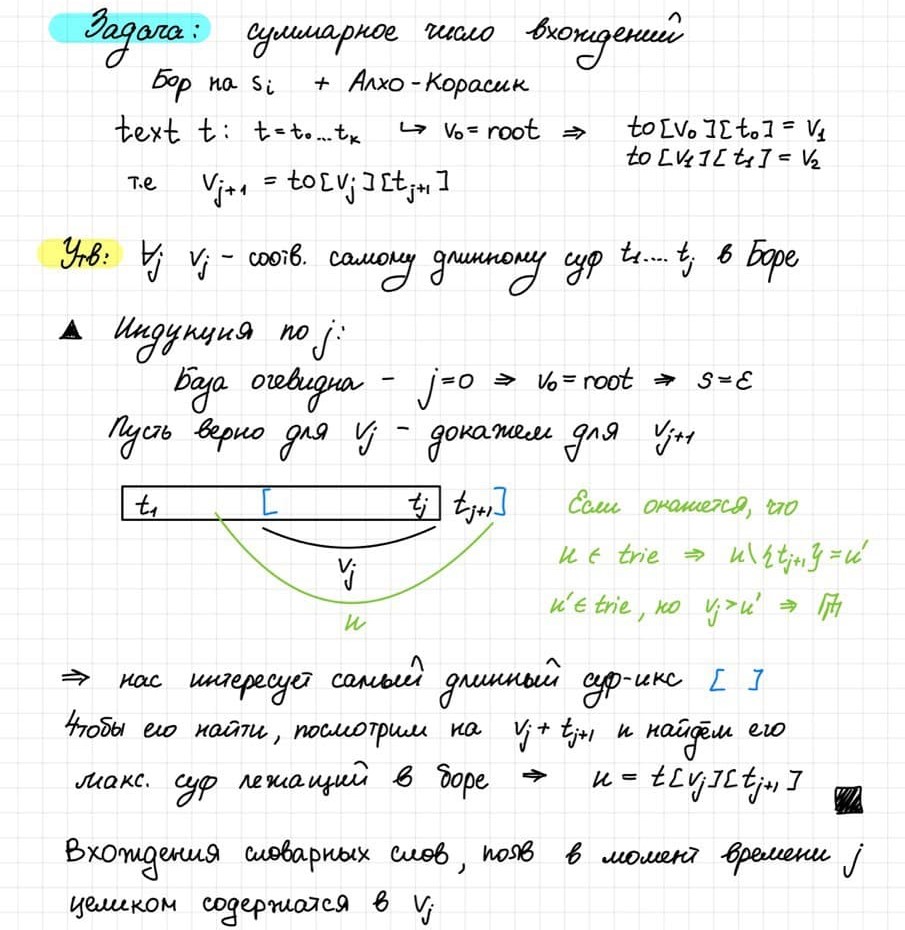 Задача: суммарное число вхождений
Бор на si + Алхо-Корасик
text t: t=t₀...tₖ ↪ v₀=root ⇒ to[v₀][t₀]=v₁
to[v₁][t₁]=v₂
т.е vⱼ₊₁ = to[vⱼ][tⱼ₊₁]
Утв: ∀j vⱼ - соотв. самому длинному суф t₁....tⱼ в Боре
▲ Индукция по j:
База очевидна - j=0 ⇒ v₀=root ⇒ s=ε
Пусть верно для vⱼ - докажем для vⱼ₊₁
t₁ [ tⱼ tⱼ₊₁]
vⱼ
u
Если окажется, что
u ∈ trie ⇒ u\{tⱼ₊₁}=u'
u'∈ trie, но vⱼ>u' ⇒
⇒ нас интересует самый длинный суф-икс [ ]
Чтобы его найти, посмотрим на vⱼ + tⱼ₊₁ и найдём его
макс. суф лежащий в боре ⇒ u = t[vⱼ][tⱼ₊₁]
Вхождения словарных слов, появ в момент времени j
целиком содержатся в vⱼ